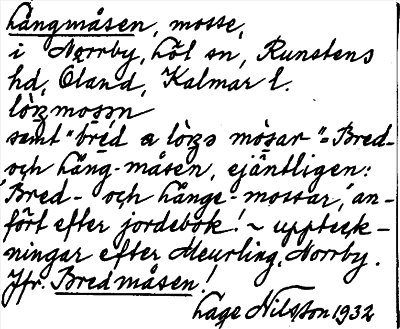 Långmåsen, mosse,
i Norrby, Löt sn, Runstens
hd, Öland, Kalmar l.
samt "brid a lòŋ mòsar" = Bred-
och Lång-måsen, ejäntligen:
'Bred- och Långe-mossar,' an-
fört efter jordebok! ~ uppteck-
ningar efter Meurling, Norrby.
Jfr. Bredmåsen!
Lage Nilsson 1932